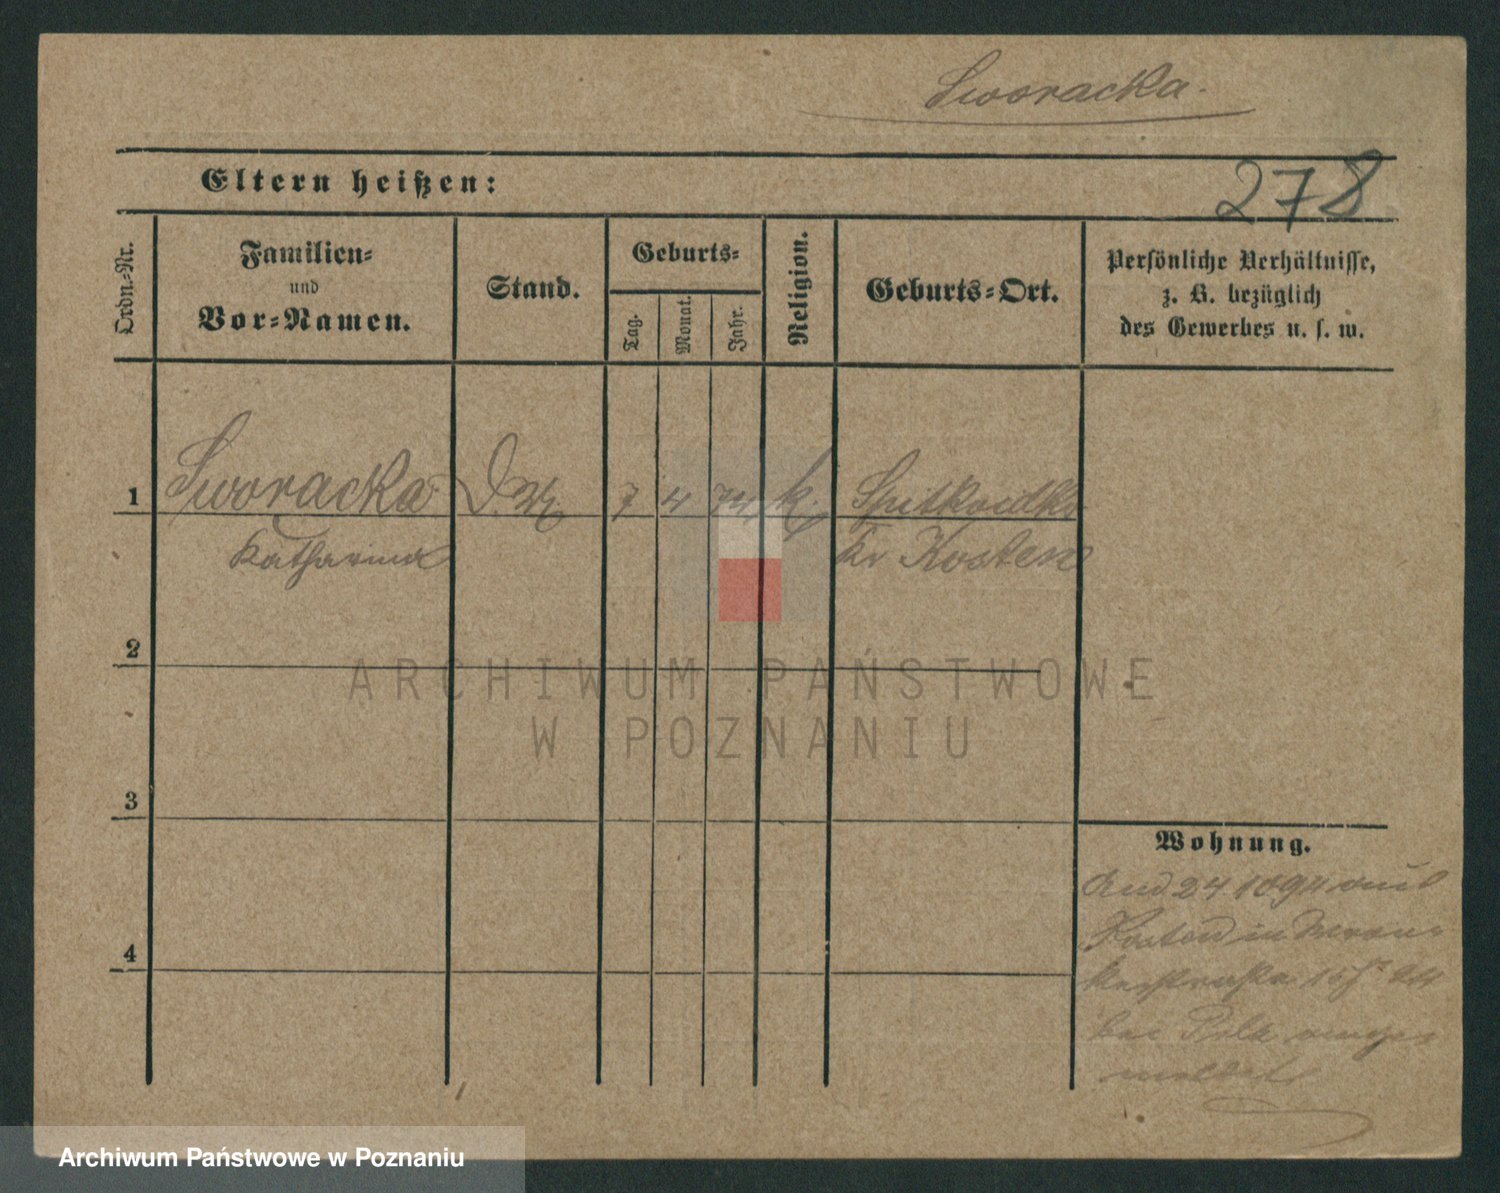 Sworacka
Eltern heißen:
278
Ordn.-Nr.
Familien-
und
Vor-Namen.
Stand.
Geburts-
Tag.
Monat.
Jahr.
Religion.
Geburts-Ort.
Persönliche Verhältnisse,
z. B. bezüglich
des Gewerbes u. s. w.
1
Sworacka
D. M
7
4
74
k.
Katharina
Kr Kosten
2
3
4
Wohnung.
24 10 94
in
15
94
bei
meldet
ARCHIWUM PAŃSTWOWE
W POZNANIU
Archiwum Państwowe w Poznaniu